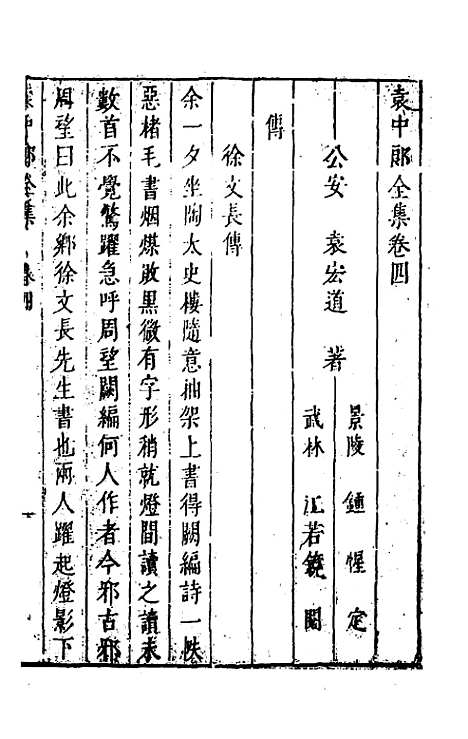 袁中郎全集卷四
公安 袁宏道 著
景陵 鍾惺 定
武林 江若鏡 閱
傳
徐文長傳
余一夕坐陶太史樓隨意抽架上書得闕編詩一帙
惡楮毛書烟煤敗黑微有字形稍就燈間讀之讀未
數首不覺驚躍急呼周望闕編何人作者今邪古邪
周望曰此余鄉徐文長先生書也兩人躍起燈影下
袁中郎全集 卷四 一